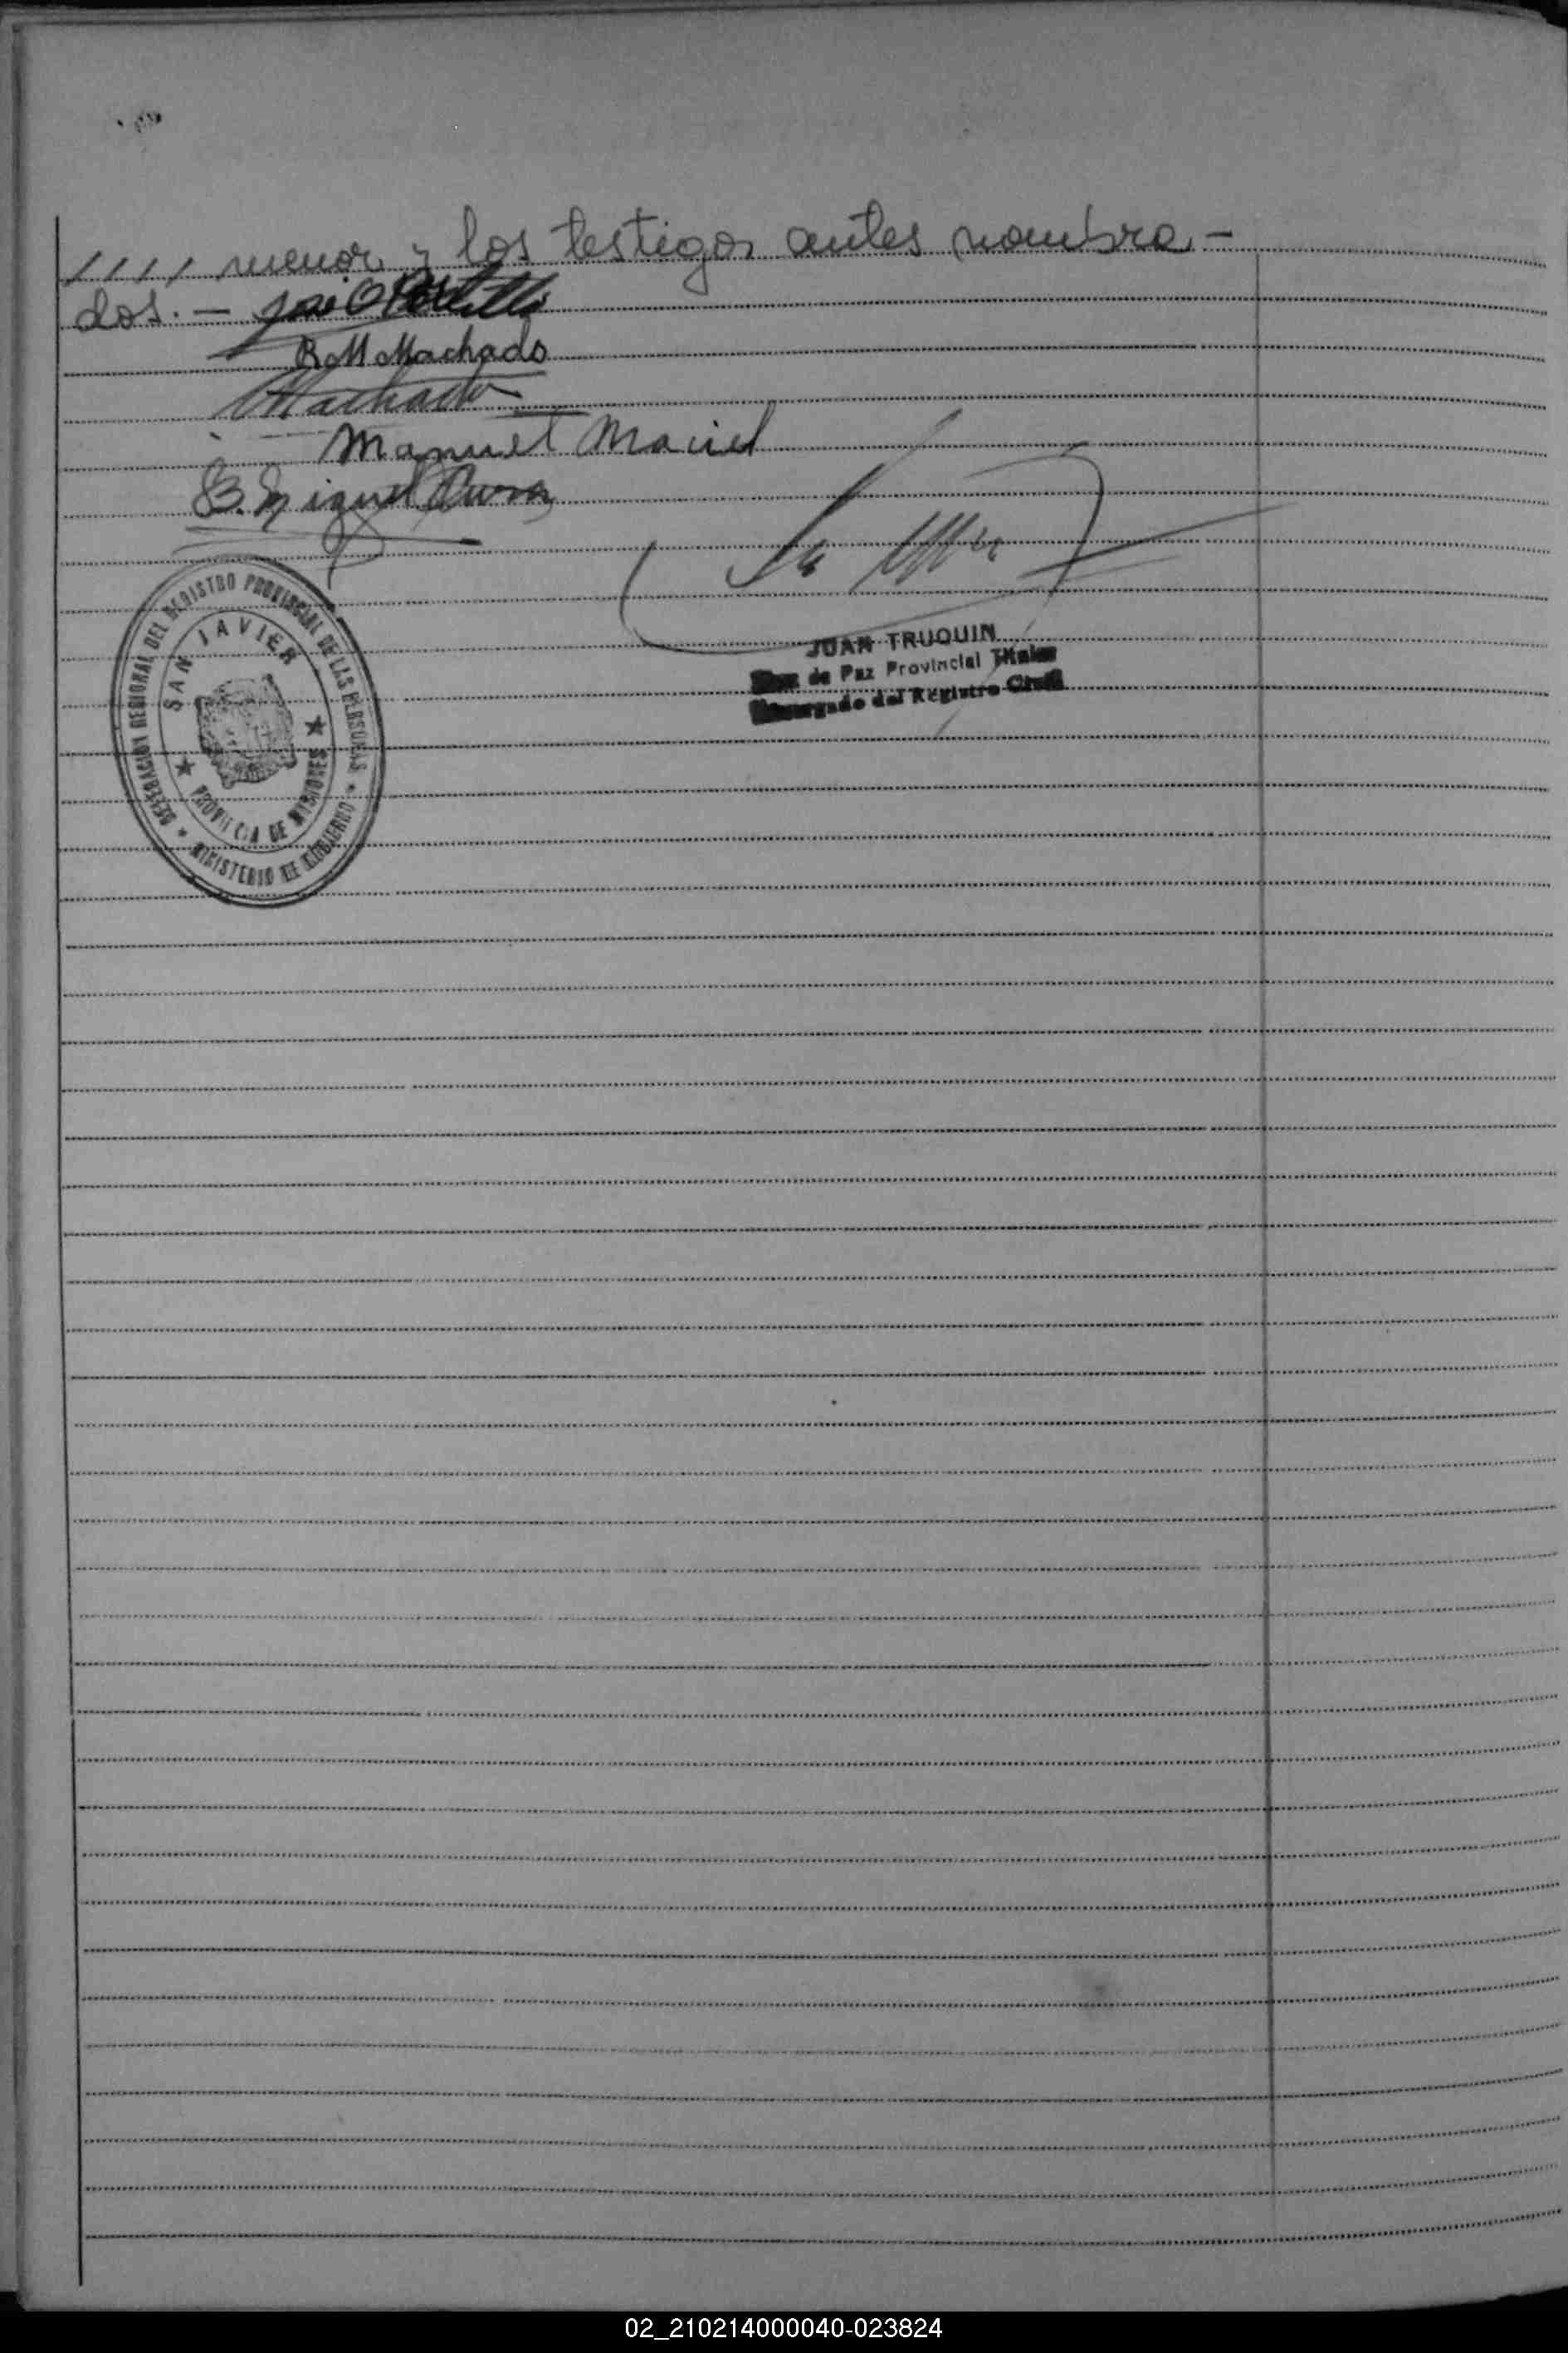 //// menor y los testigos antes nombra -
dos. - José O Portillo
R M Machado
Machado
Manuel Maciel
B. Miguel
JUAN TRUQUIN
Juez de Paz Provincial Titular
Encargado del Registro Civil
DELEGACION REGIONAL DEL REGISTRO PROVINCIAL DE LAS PERSONAS * MINISTERIO DE GOBIERNO *
SAN JAVIER
★ PROVINCIA DE MISIONES ★
02_210214000040-023824